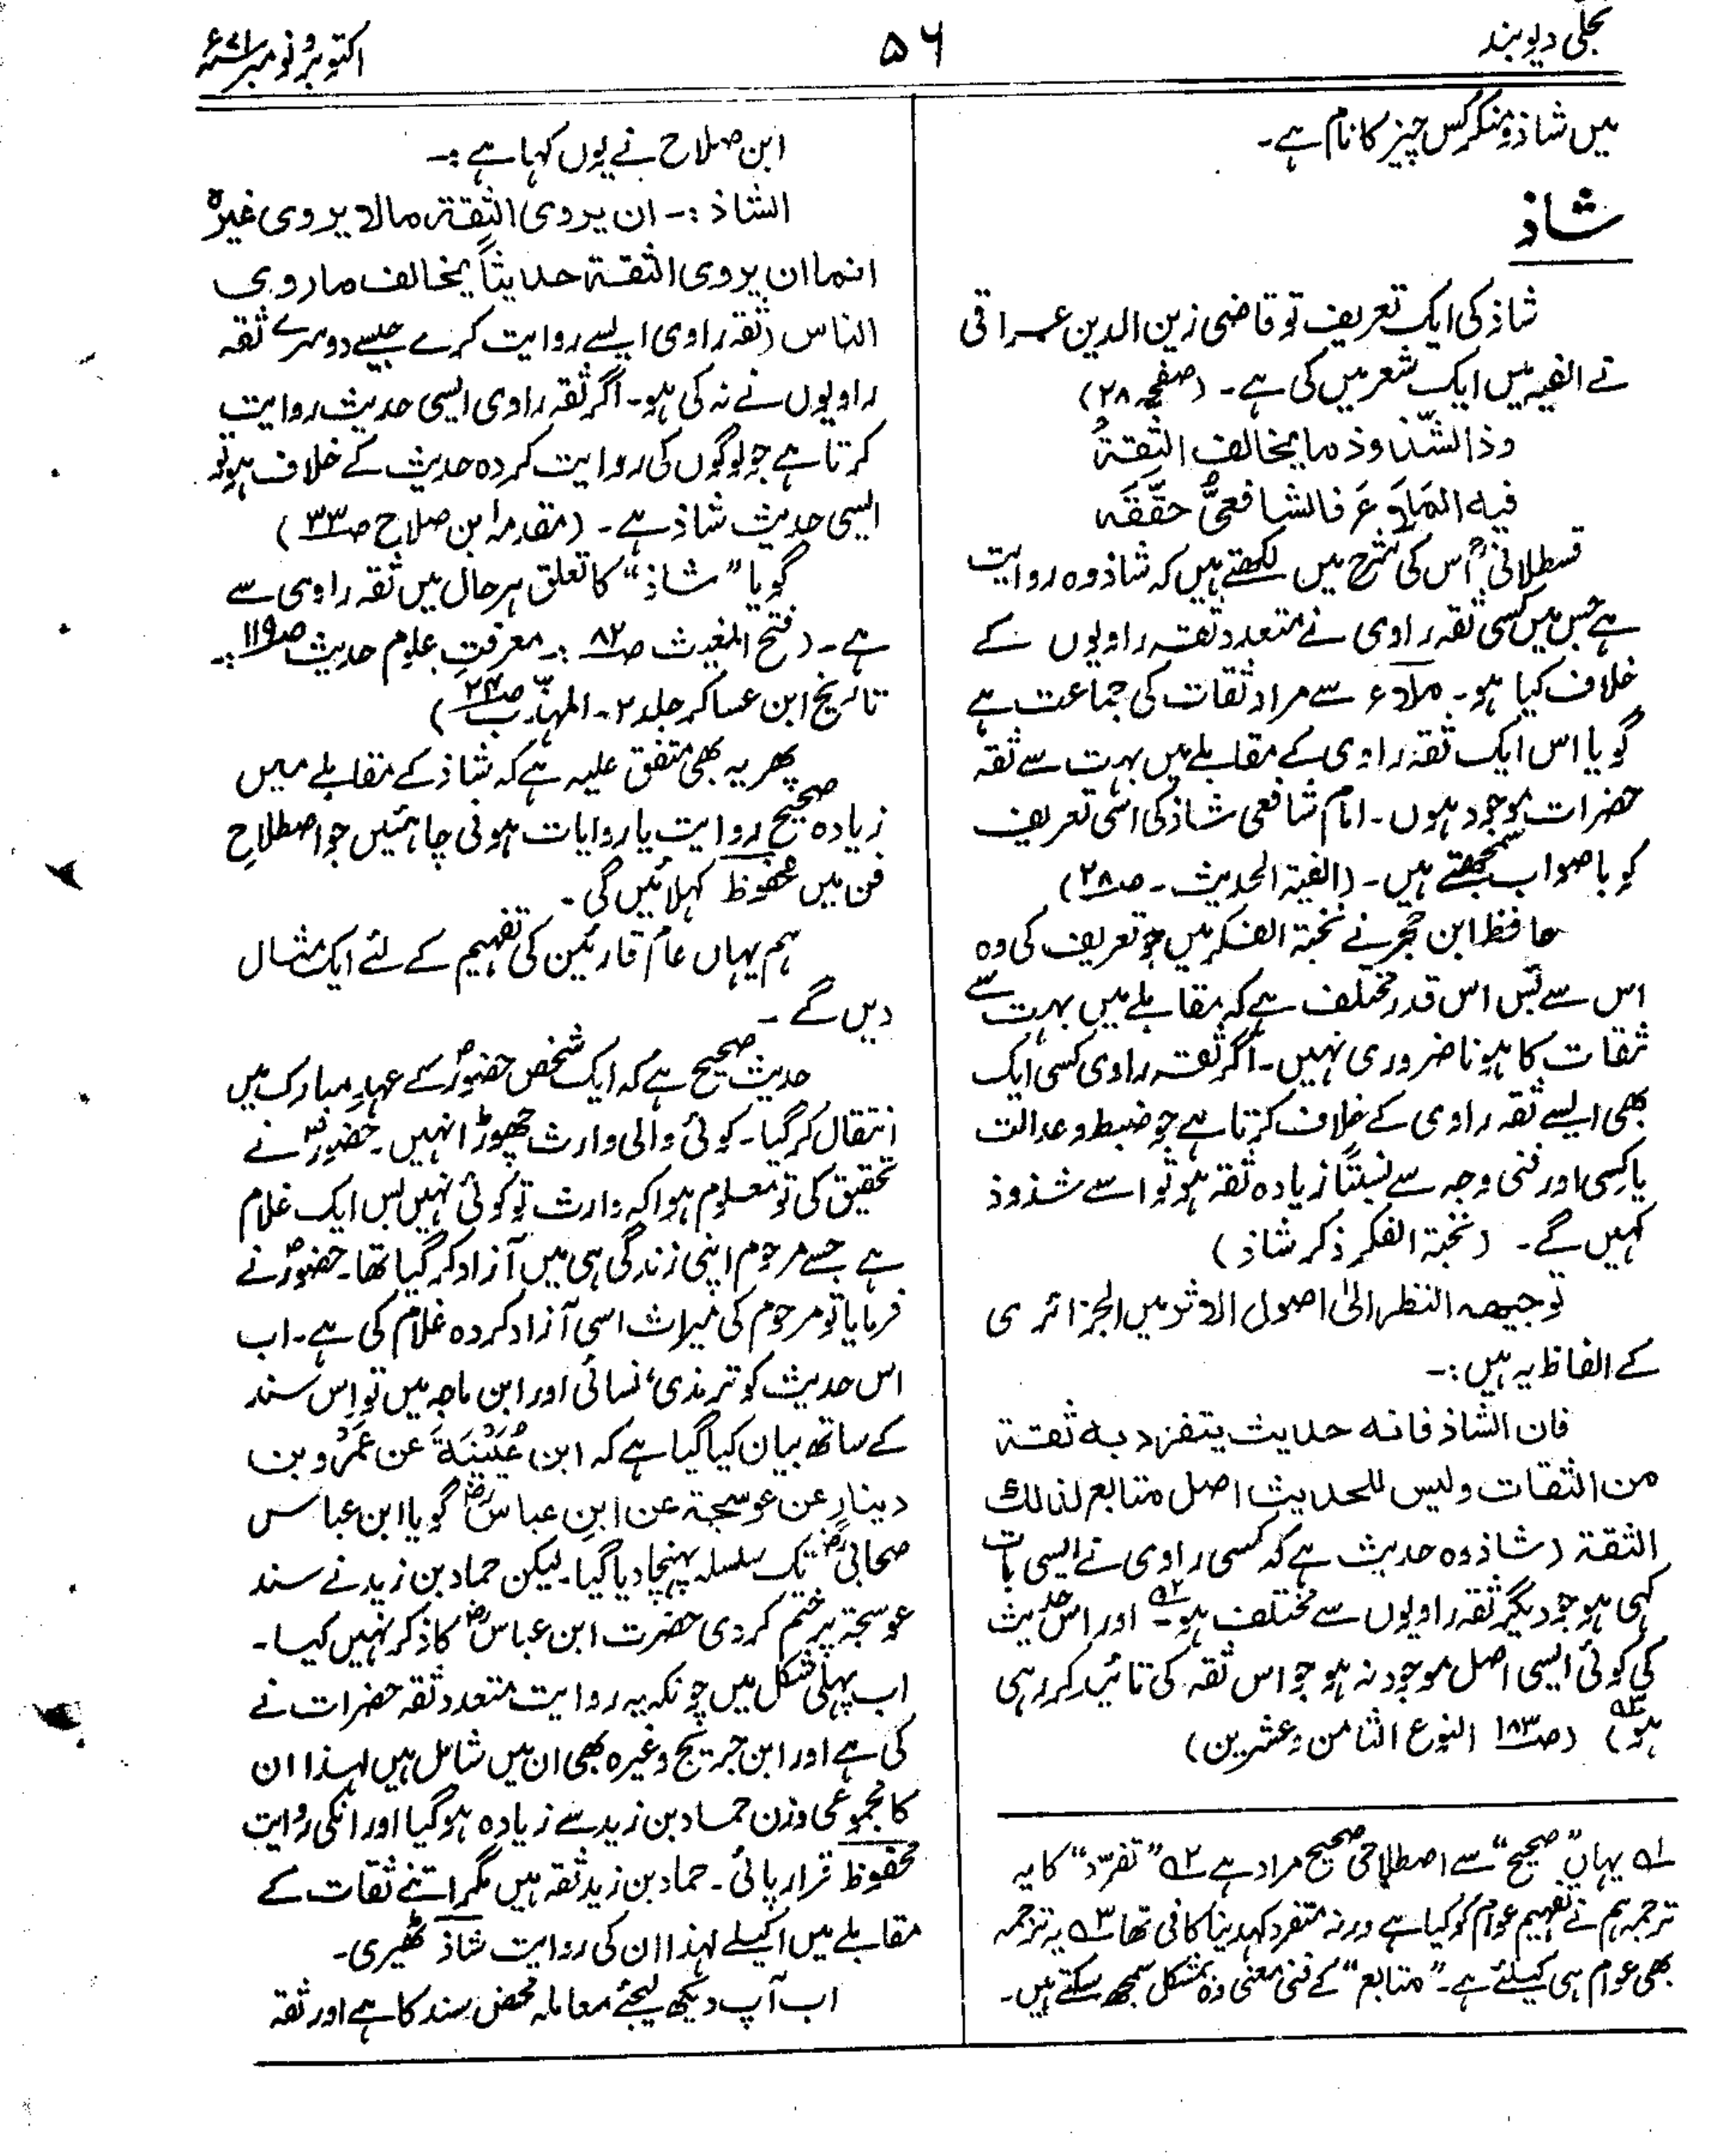 تجلی دیوبند
۵۶
اکتوبر و نومبر ۷۱ء
میں شاذ و منکر کس چیز کا نام ہے۔
شاذ
شاذ کی ایک تعریف تو قاضی زین الدین عراقی
نے الفیہ میں ایک شعر میں کی ہے۔ (صفحہ ۲۸)
وذا الشّذوذ ما یخالف الثِقةُ
فیه المَلَاءَ فالشافعیُّ حقّقَه
قسطلانیؒ اس کی شرح میں لکھتے ہیں کہ شاذ وہ روایت
ہے جس میں کسی ثقہ راوی نے متعدد ثقہ راویوں کے
خلاف کیا ہو۔ ملاء سے مراد ثقات کی جماعت ہے
گویا اس ایک ثقہ راوی کے مقابلے میں بہت سے ثقہ
حضرات موجود ہوں۔ امام شافعی شاذ کی اسی تعریف
کو باصواب سمجھتے ہیں۔ (الفیۃ الحدیث۔ ص۲۸)
حافظ ابن حجر نے نخبۃ الفکر میں جو تعریف کی وہ
اس سے بس اس قدر مختلف ہے کہ مقابلے میں بہت سے
ثقات کا ہونا ضروری نہیں۔ اگر ثقہ راوی کسی ایک
بھی ایسے ثقہ راوی کے خلاف کرتا ہے جو ضبط و عدالت
یا کسی اور فنی وجہ سے نسبتًا زیادہ ثقہ ہو تو اسے شذوذ
کہیں گے۔ (نخبۃ الفکر ذکر شاذ)
توجیهه النظر الیٰ اصول الاوثر میں الجزائری
کے الفاظ یہ ہیں:۔
فان الشاذ فانه حدیث یتفرد به ثقة
من الثقات ولیس للحدیث اصل متابع لذالك
الثقة (شاذ وہ حدیث ہے کہ کسی راوی نے ایسی بات
کہی ہو جو دیگر ثقہ راویوں سے مختلف ہو۔ ۲؎ اور اس حدیث
کی کوئی ایسی اصل موجود نہ ہو جو اس ثقہ کی تائید کر رہی
ہو ۳؎) (ص۱۸۳ النوع الثامن وعشرین)
۱؎ یہاں ”صحیح“ سے اصطلاحی صحیح مراد ہے ۲؎ ”تفرّد“ کا یہ
ترجمہ ہم نے تفہیم عوام کو کیا ہے ورنہ متفرد کہدینا کافی تھا ۳؎ یہ ترجمہ
بھی عوام ہی کیلئے ہے۔ ”متابع“ کے فنی معنی وہ بمشکل سمجھ سکتے ہیں۔
ابن صلاح نے یوں کہا ہے:۔
الشاذ:۔ ان یروی الثِقة مالا یروی غیرہٗ
انما ان یروی الثقة حدیثاً یخالف ما روی
الناس (ثقہ راوی ایسے روایت کرے جیسے دوسرے ثقہ
راویوں نے نہ کی ہو۔ اگر ثقہ راوی ایسی حدیث روایت
کرتا ہے جو لوگوں کی روایت کردہ حدیث کے خلاف ہو تو
ایسی حدیث شاذ ہے۔ (مقدمہ ابن صلاح ص۳۳)
گویا ”شاذ“ کا تعلق ہر حال میں ثقہ راوی سے
ہے۔ (فتح المغیث ص۸۲ :۔ معرفتِ علوم حدیث ص۱۱۹ :۔
تاریخ ابن عساکر جلد ۲۔ المہذّب ص۲۴)
پھر یہ بھی متفق علیہ ہے کہ شاذ کے مقابلے میں
زیادہ صحیح روایت یا روایات ہونی چاہئیں جو اصطلاحِ
فن میں محفوظ کہلائیں گی۔
ہم یہاں عام قارئین کی تفہیم کے لئے ایک مثال
دیں گے۔
حدیث صحیح ہے کہ ایک شخص حضورؐ کے عہدِ مبارک میں
انتقال کر گیا۔ کوئی والی وارث چھوڑا نہیں۔ حضورؐ نے
تحقیق کی تو معلوم ہوا کہ وارث تو کوئی نہیں بس ایک غلام
ہے جسے مرحوم اپنی زندگی ہی میں آزاد کر گیا تھا۔ حضورؐ نے
فرمایا تو مرحوم کی میراث اسی آزاد کردہ غلام کی ہے۔ اب
اس حدیث کو ترمذی، نسائی اور ابن ماجہ میں تو اِس سند
کے ساتھ بیان کیا گیا ہے کہ ابن عُیَیْنَةَ عن عَمْرو بن
دینارِ عن عوسجۃ عن ابنِ عباسؓ گویا ابن عباس
صحابیؓ تک سلسلہ پہنچا دیا گیا۔ لیکن حماد بن زید نے سند
عوسجۃ پر ختم کر دی حضرت ابن عباسؓ کا ذکر نہیں کیا۔
اب پہلی شکل میں چونکہ یہ روایت متعدد ثقہ حضرات نے
کی ہے اور ابن جریج وغیرہ بھی ان میں شامل ہیں لہذا ان
کا مجموعی وزن حماد بن زید سے زیادہ ہو گیا اور انکی روایت
محفوظ قرار پائی۔ حماد بن زید ثقہ ہیں مگر اتنے ثقات کے
مقابلے میں اکیلے لہذا ان کی روایت شاذ ٹھیری۔
اب آپ دیکھ لیجئے معاملہ محض سند کا ہے اور ثقہ